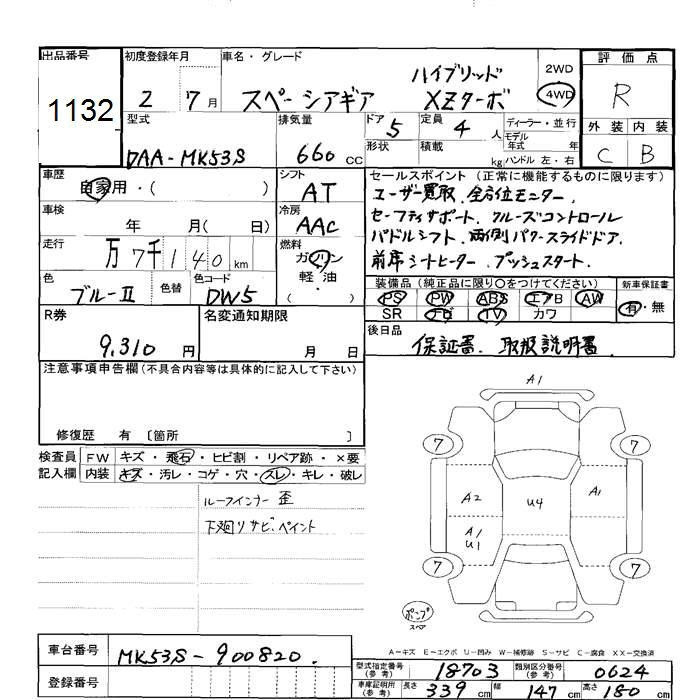 出品番号
1132
初度登録年月
2 7月
車名・グレード
スペーシアギア
ハイブリッド
XZターボ
2WD
4WD
評価点
R
外装 内装
C B
型式
DAA-MK53S
排気量
660 cc
ドア 5
定員 4 人
形状
積載 kg
ディーラー・並行
モデル年式 年
ハンドル 左・右
車歴
自家用・( )
シフト
AT
車検
年 月( 日)
冷房
AAC
走行
万 7千 1 4 0 km
燃料
ガソリン
軽油
( ・ )
色
ブルーⅡ
色替
色コード
DW5
セールスポイント (正常に機能するものに限ります)
ユーザー買取、全方位モニター、
セーフティサポート、クルーズコントロール
パドルシフト、両側パワースライドドア、
前席シートヒーター、プッシュスタート、
装備品 (純正品に限り○をつけてください)
PS PW ABS エアB AW
SR ナビ TV カワ
新車保証書
有・無
R券
9,310 円
名変通知期限
月 日
後日品
保証書、取扱説明書
注意事項申告欄 (不具合内容等は具体的に記入して下さい)
修復歴 有 〔箇所 〕
検査員
記入欄
FW キズ・飛石・ヒビ割・リペア跡・×要
内装 キズ・汚レ・コゲ・穴・スレ・キレ・破レ
ルーフインナー 歪
下廻りサビ、ペイント
A1
7 7
A2 U4 A1
A1
U1
7 7
ポンプ
スペア
A-キズ E-エクボ U-凹み W-補修跡 S-サビ C-腐食 XX-交換済
車台番号
MK53S-900820.
登録番号
型式指定番号(参考) 18703
類別区分番号(参考) 0624
車庫証明用(参考) 長さ 339 cm 幅 147 cm 高さ 180 cm